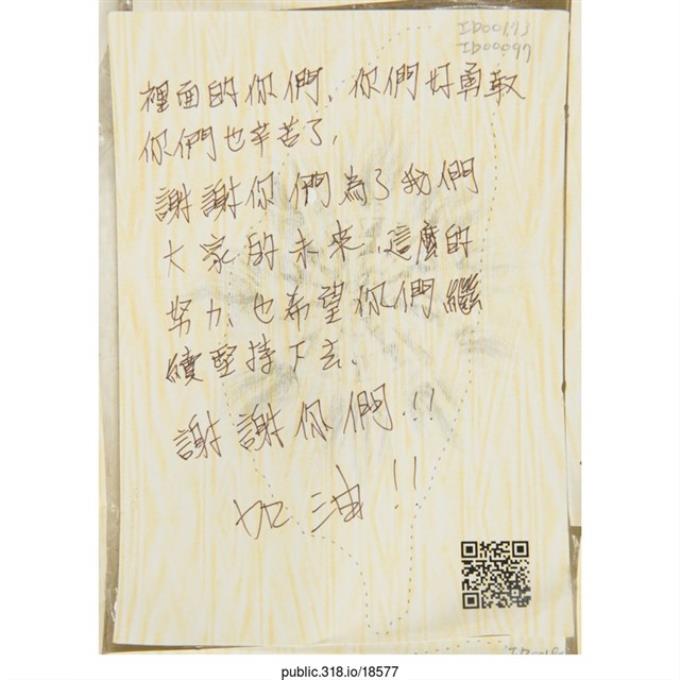 ID00173
ID00097
裡面的你們、你們好勇敢
你們也辛苦了,
謝謝你們為了我們
大家的未來、這麼的
努力、也希望你們繼
續堅持下去、
謝謝你們!!
加油!!
public.318.io/18577